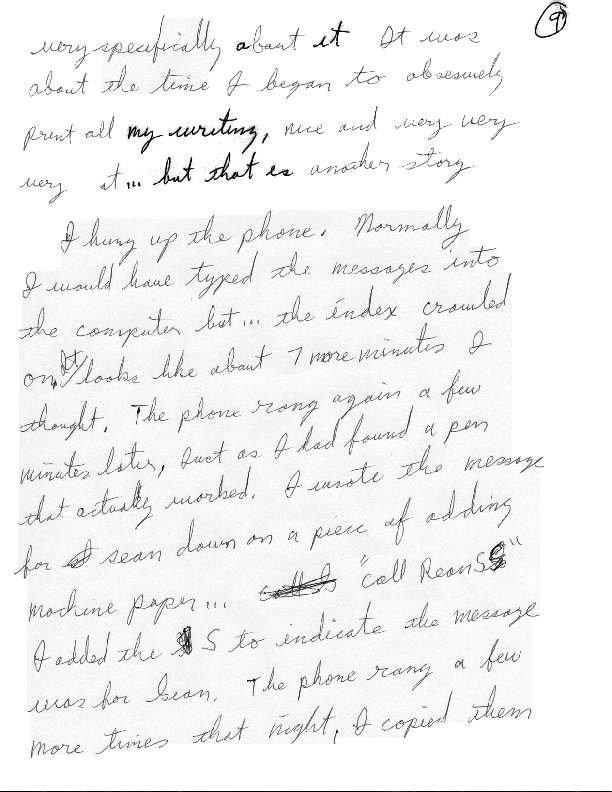 9
very specifically about it It was
about the time I began to obsesively
print all my writing, nice and very very
very at... but that is another story
I hung up the phone. Normally
I would have typed the messages into
the computer but... the index crawled
on, It looks like about 7 more minutes I
thought. The phone rang again a few
minutes later, Just as I had found a pen
that actually worked. I wrote the message
for sean down on a piece of adding
machine paper... "call Rean S"
I added the S to indicate the message
was for Sean. The phone rang a few
more times that night, I copied them